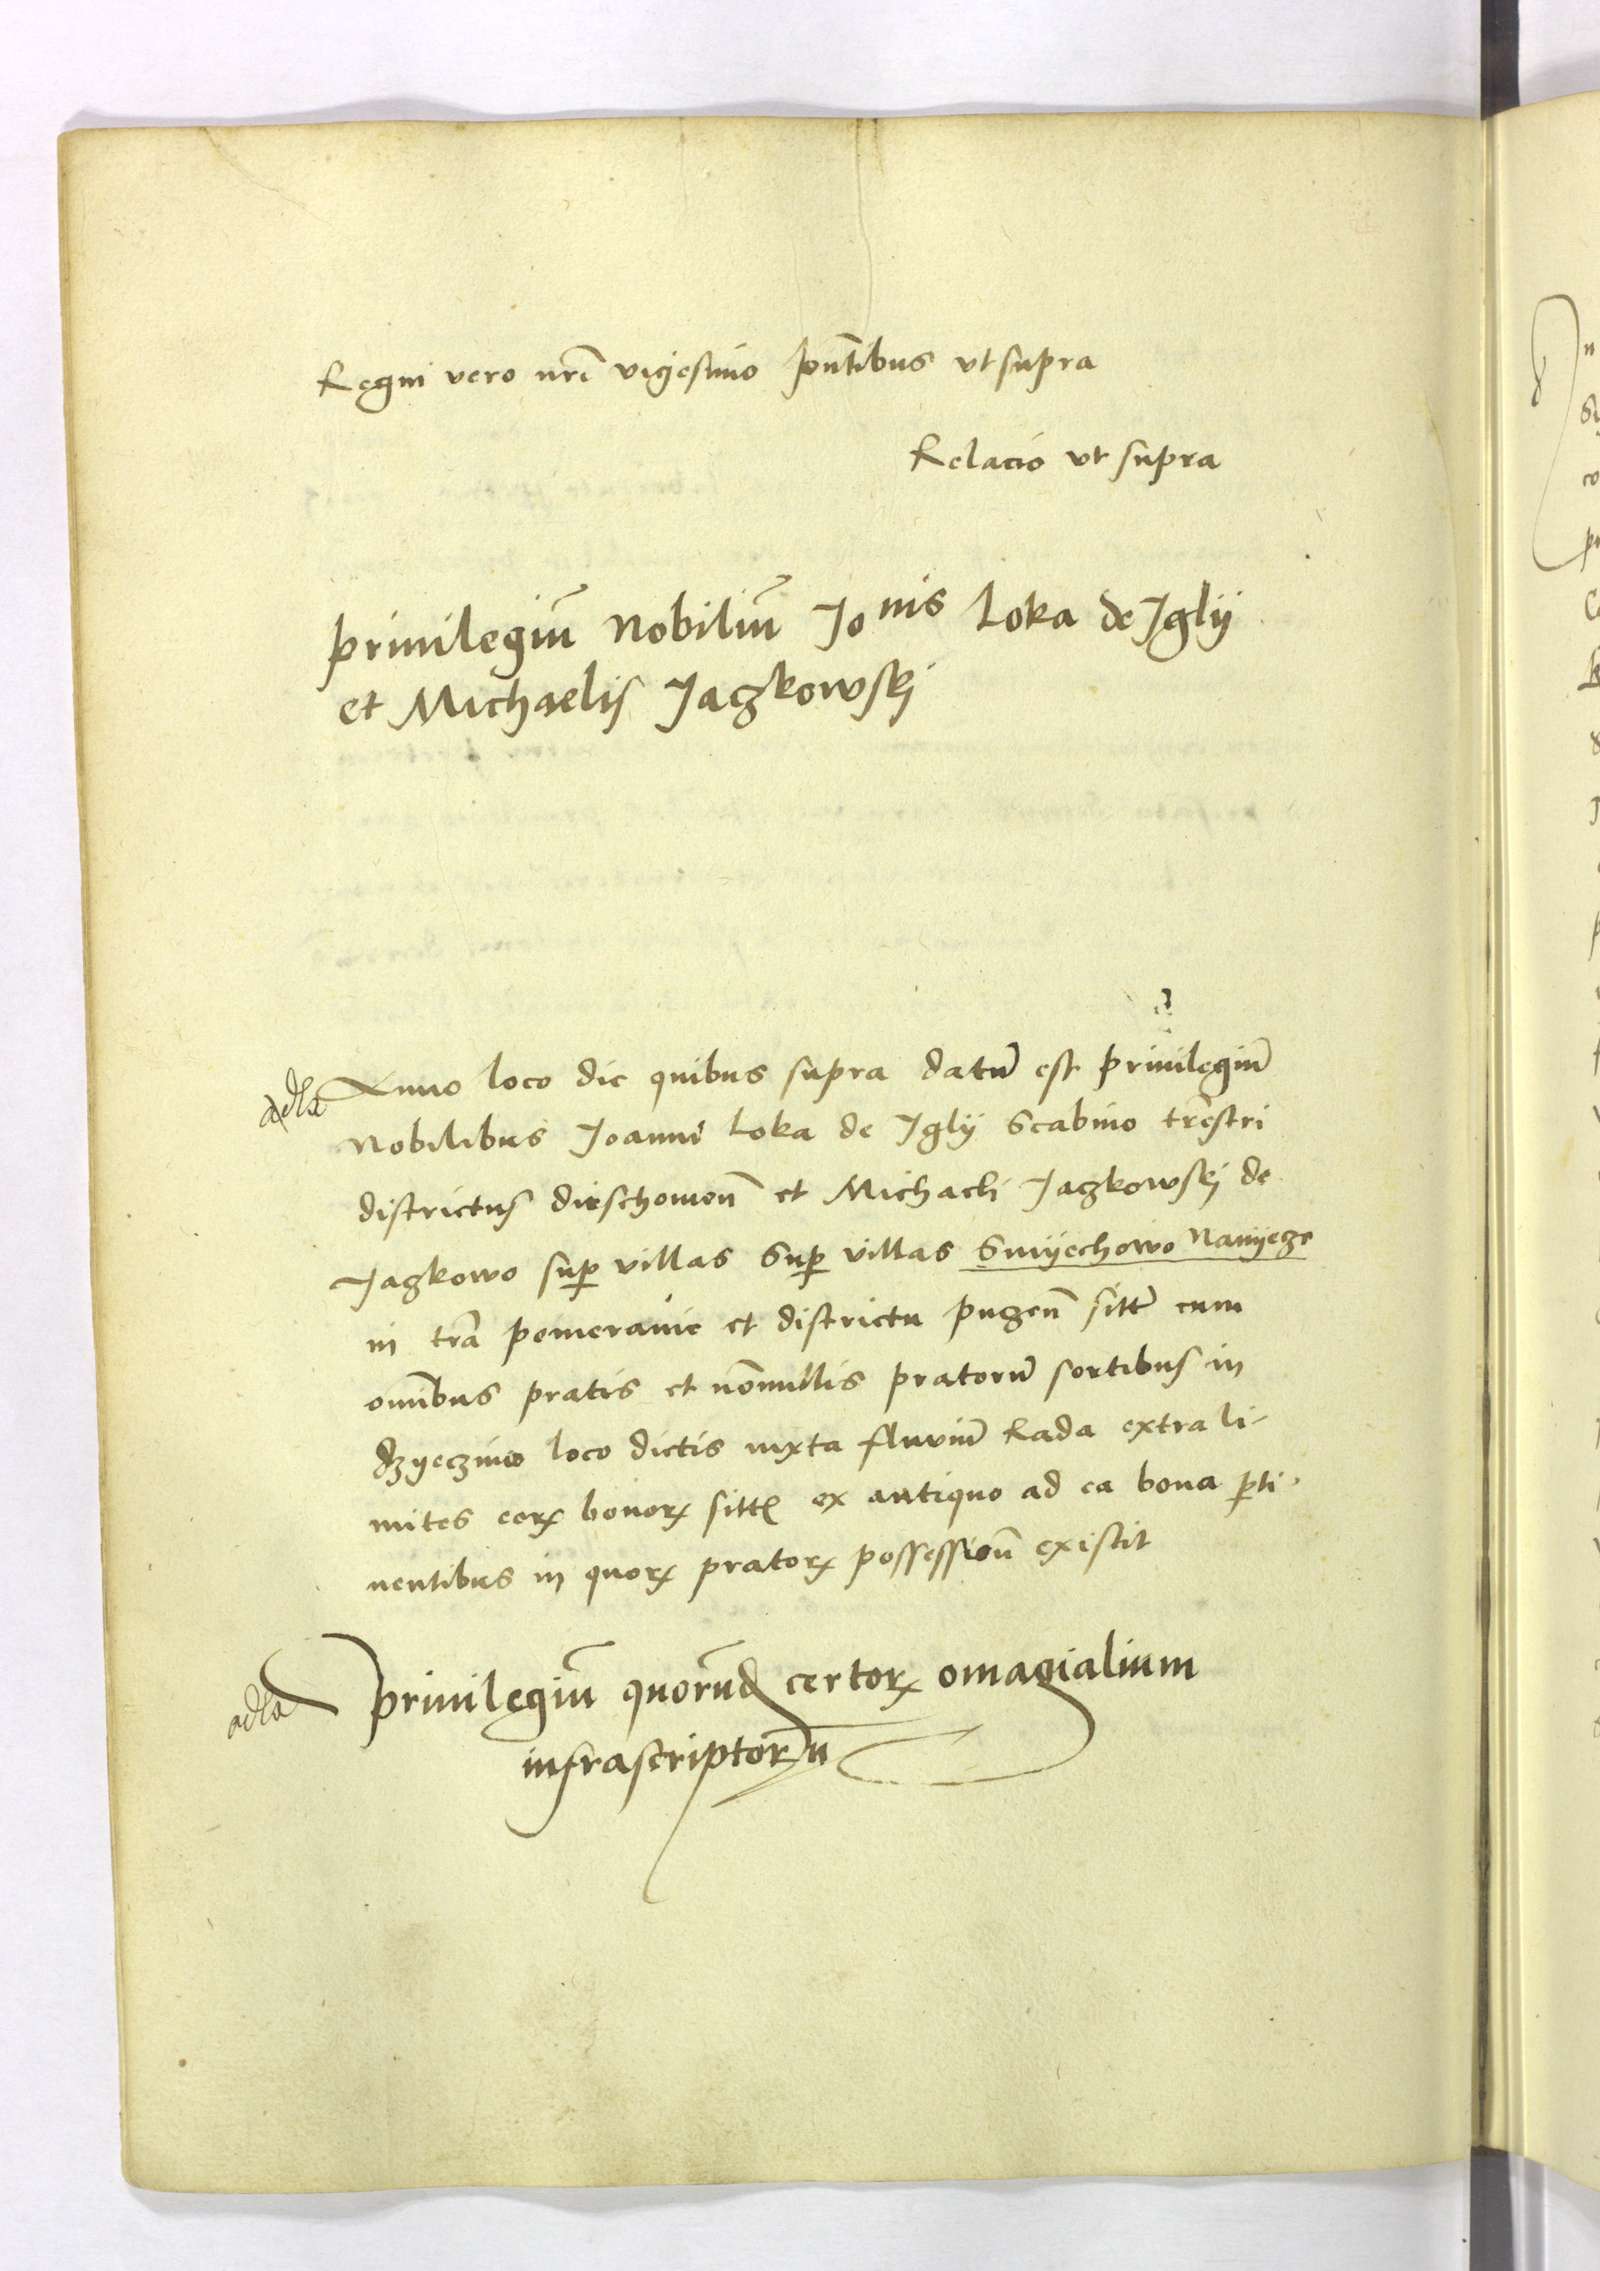 Regni vero nrī vigesimo pn̄tibus vt supra
Relacio vt supra
Priuilegiū Nobiliū Jo nis Loka de Iglÿ
et Michaelis Jaczkowskj
Anno loco die quibus supra datū est priuilegiū
Nobilibus Joanni Loka de Iglÿ Scabino tr̄estri
districtus dirschouien̄ et Michaeli Jaczkowskj de
Jaczkowo sup villas Sup villas Smÿechowo Nanÿcze
in tr̄a pomeranie et districtu puczen̄ sitt̄ cum
om̄ibus pratis et nōnnullis pratorū sortibus in
loco dictis iuxta fluuiū Rada extra li-
mites eorꝝ bonorꝝ sitt̄ ex antiquo ad ea bona p̄ti-
nentibus in quorꝝ pratorꝝ possessioñ existit
Priuilegiū quorūd certorꝝ omagialium
infrascriptorū